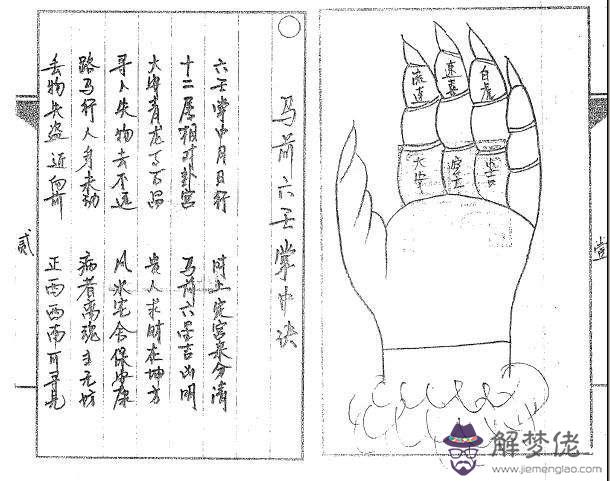 壹
流连
速喜
白虎
大安
空亡
马前六壬掌中诀
六壬掌中月日行 时上定宫来分清
十二属相对卦宫 马前六壬吉凶明
大安青龙事百昌 贵人求财在坤方
寻人失物去不远 风水宅舍保安康
路马行人身未动 病者离魂主无妨
丢物失盗近 前 正西西南可寻见
贰
解梦佬
www.jiemenglao.com